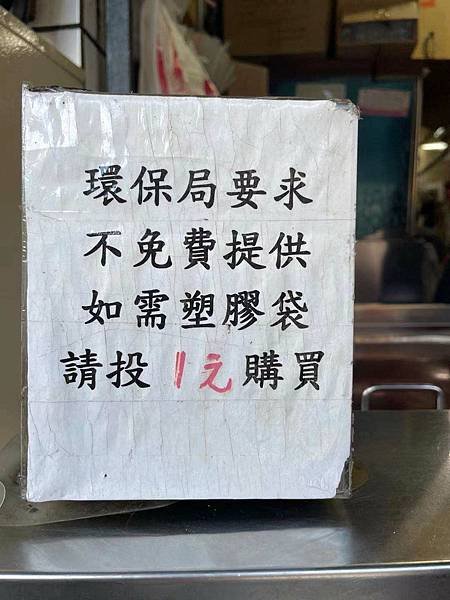 環保局要求
不免費提供
如需塑膠袋
請投1元購買